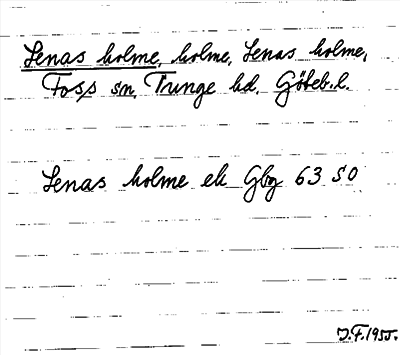 Lenas holme, holme, Lenas holme,
Foss sn, Tunge hd. Göteb. l.
Lenas holme ek Gbg 63 SO
J.F. 1955.